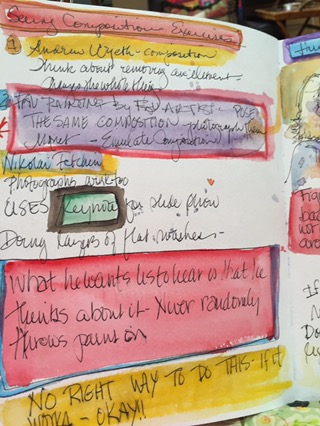 Seeing Composition Exercises
1 Andrew Wyeth - composition
Think about removing an element
Changes the whole thing
FAV PAINTING by FAV ARTIST - POSE
THE SAME COMPOSITION photograph them
Monet - Emulate Composition
Nikolai
Photographs work too
USES Keynote for slide show
Doing layers of flat washes -
What he wants us to hear is that he
thinks about it - Never randomly
throws paint on
NO RIGHT WAY TO DO THIS - IF IT
WORKS - OKAY!!
If